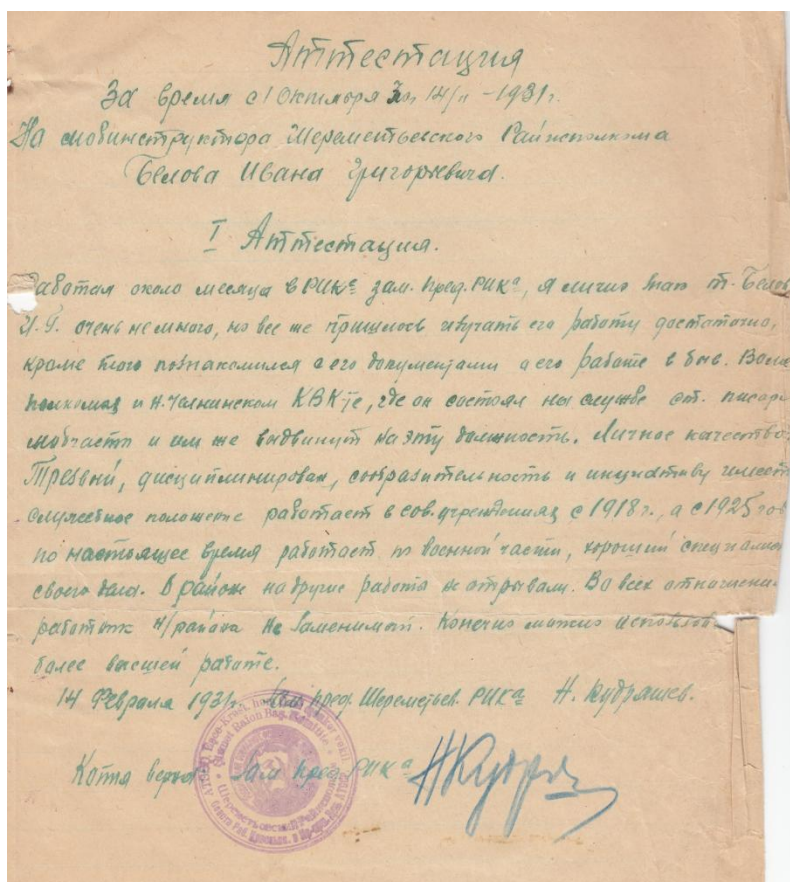 Аттестация
За время с 1 Октября 30 по 14/II - 1931г.
На мобинструктора Шереметьевского Райисполкома
Белова Ивана Григорьевича.
I Аттестация.
Работая около месяца в РИКе зам. пред. РИКа, я лично знаю т. Белова
И.Г. очень не много, но все же пришлось изучать его работу достаточно,
кроме того познакомился с его документами о его работе в быв. Воли
полкомах и Н. Челнинском КВК-те, где он состоял на службе ст. писаря
мобчасти и им же выдвинут на эту должность. Личное качество:
Трезвый, дисциплинирован, сообразительность и инциативу имеет
служебное положение работает в сов. учреждениях с 1918 г., а с 1925 год
по настоящее время работает по военной части, хороший специалист
своего дела. В районе на другие работа не отрывали. Во всех отношени
работник н/района не заменимый. Конечно можно использов
более высшей работе.
14 Февраля 1931г. Зам. пред. Шереметьев. РИКа Н. Кудряшев.
Копия верна Зам пред. РИКа